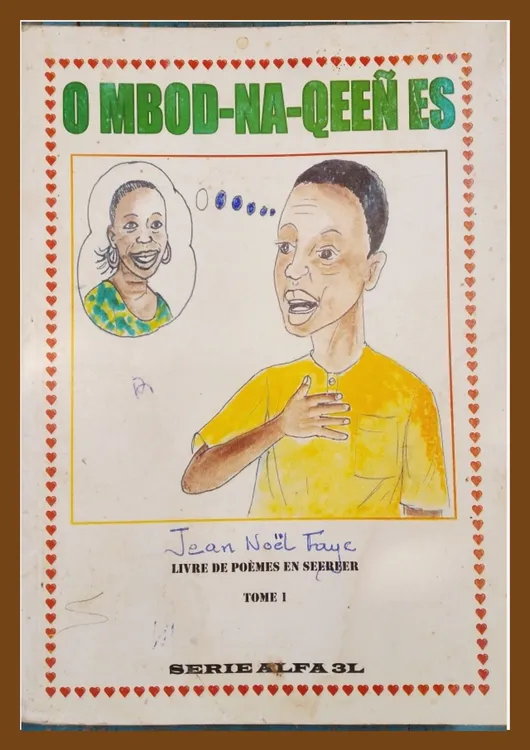 O MBOD-NA-QEEÑ ES
Jean Noël Faye
LIVRE DE POÈMES EN SEEREER
TOME 1
SERIE ALFA 3L